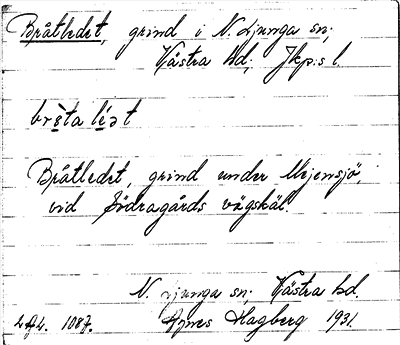 Bråtledet, grind i N. Ljunga sn;
Västra hd; Jkp:s l.
bròta lé̩ǝt
Bråtledet, grind under Mejensjö,
vid Södragårds vägskäl.
N. Ljunga sn; Västra hd.
1087. Agnes Hagberg 1931.